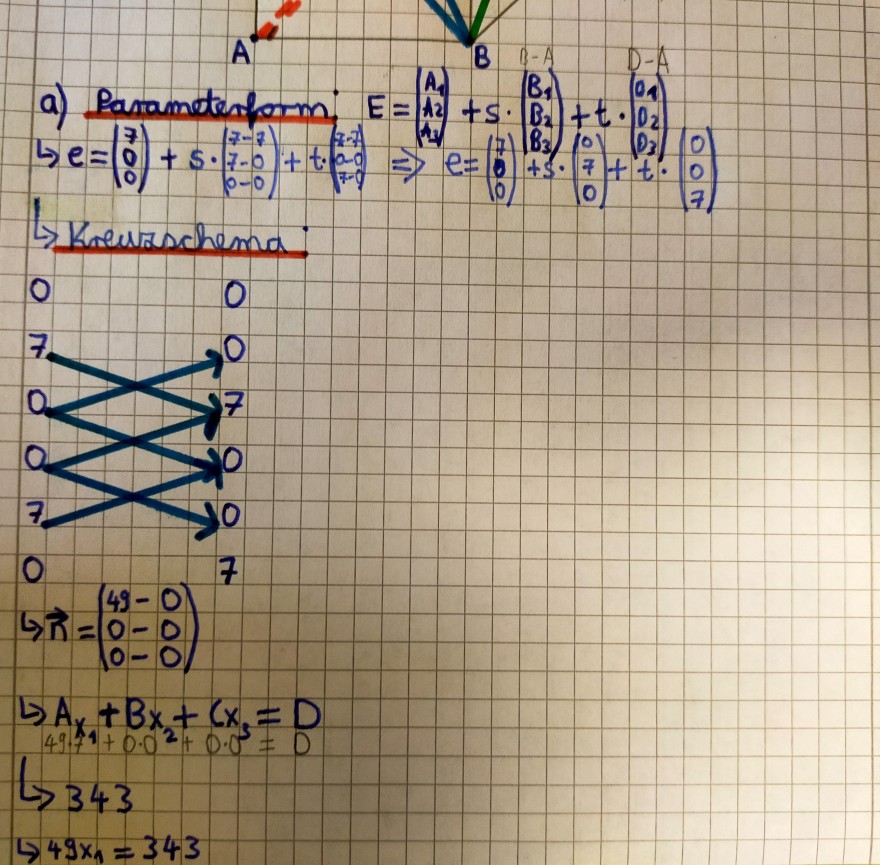 A B B-A D-A
a) Parameterform: E = (A1 A2 A3) + s · (B1 B2 B3) + t · (D1 D2 D3)
↳ e = (7 0 0) + s · (7-7 7-0 0-0) + t · (7-7 0-0 7-0) => e = (7 0 0) + s · (0 7 0) + t · (0 0 7)
↳ Kreuzschema:
0 0
7 0
0 7
0 0
7 0
0 7
↳ n⃗ = (49-0 0-0 0-0)
↳ Ax1 + Bx2 + Cx3 = D
49·7 + 0·0 + 0·0 = D
↳ 343
↳ 49x1 = 343